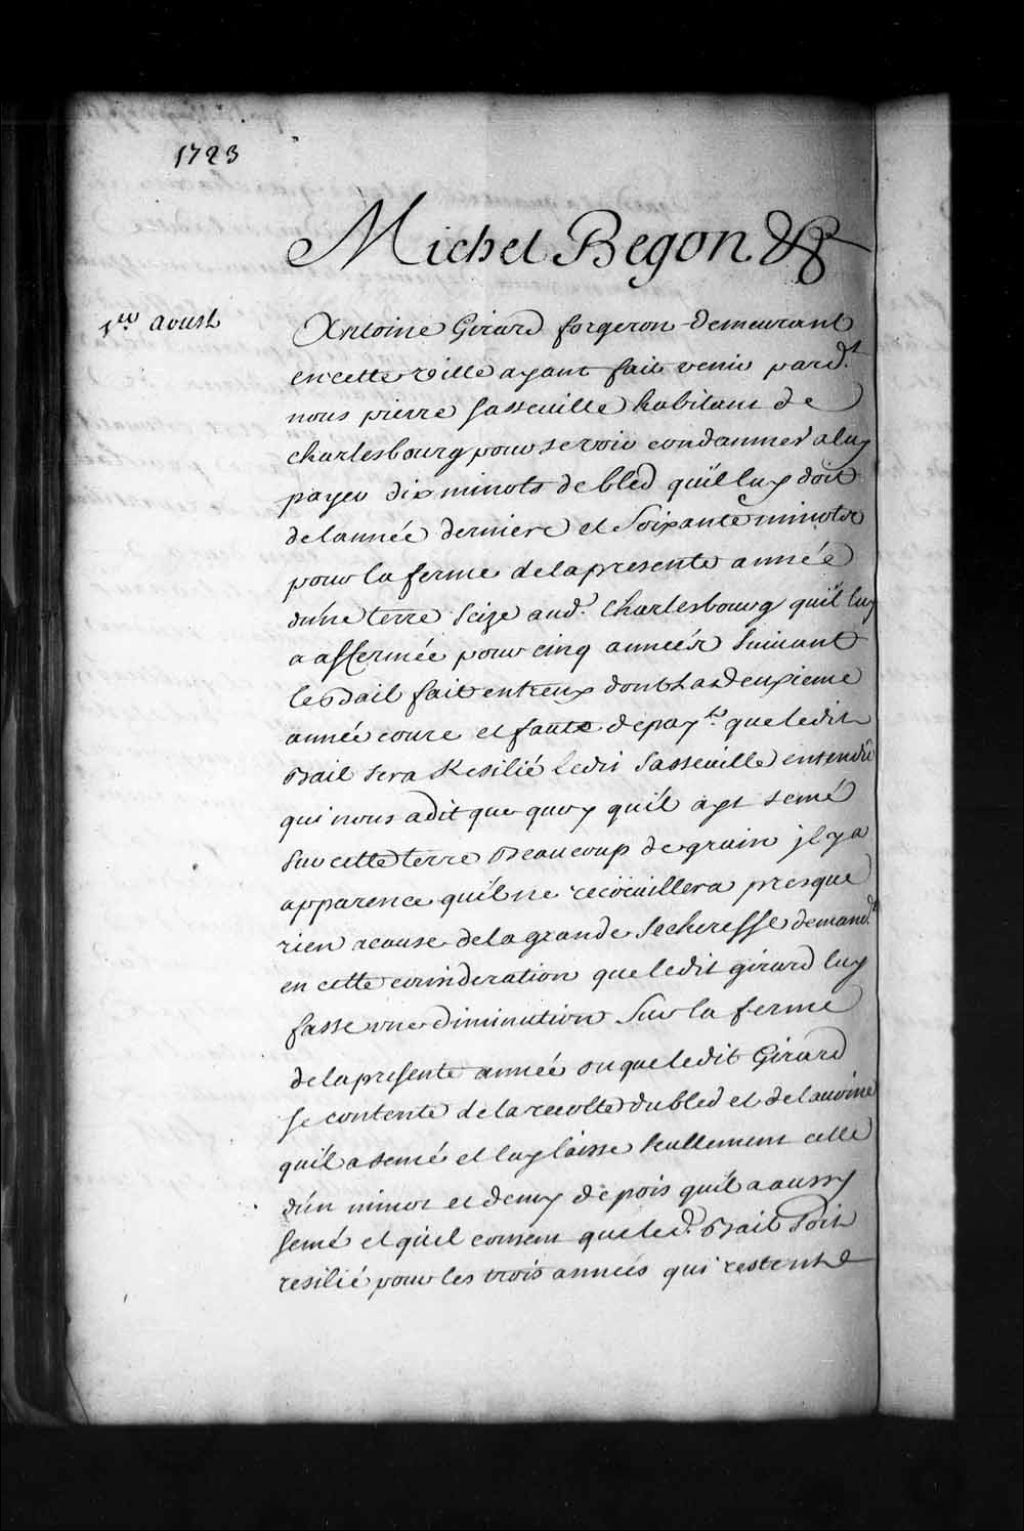 1723
Michel Begon &c
1er aoust
Antoine Girard forgeron demeurant
en cette ville ayant fait venir pard.t
nous pierre Jasseuille habitant de
charlesbourg pour se voir condamner a luy
payer dix minots de bled qu'il luy doit
de l'année derniere et Soixante minots
pour la ferme de la presente année
d'une terre Seize aud.t Charlesbourg qu'il luy
a affermée pour cinq années Suivant
le Bail fait entreux dont La deuxieme
année coure et faute de paym.t que ledit
Bail sera Resilié Ledit Jasseuille entendu
qui nous a dit que quoy qu'il ayt semé
Sur cette terre Beaucoup de grain jl y a
apparence qu'il ne recoeuillera presque
rien acause de la grande Secheresse demand.t
en cette consideration que ledit girard luy
fasse une diminution Sur la ferme
de la presente année ou que ledit Girard
se contente de la recolte du bled et de lavoine
qu'il a semé et luy laisse seullement celle
d'un minot et demy de pois qu'il a aussy
semé et qu'il consent que led. Bail Soit
resilié pour les trois années qui restent a